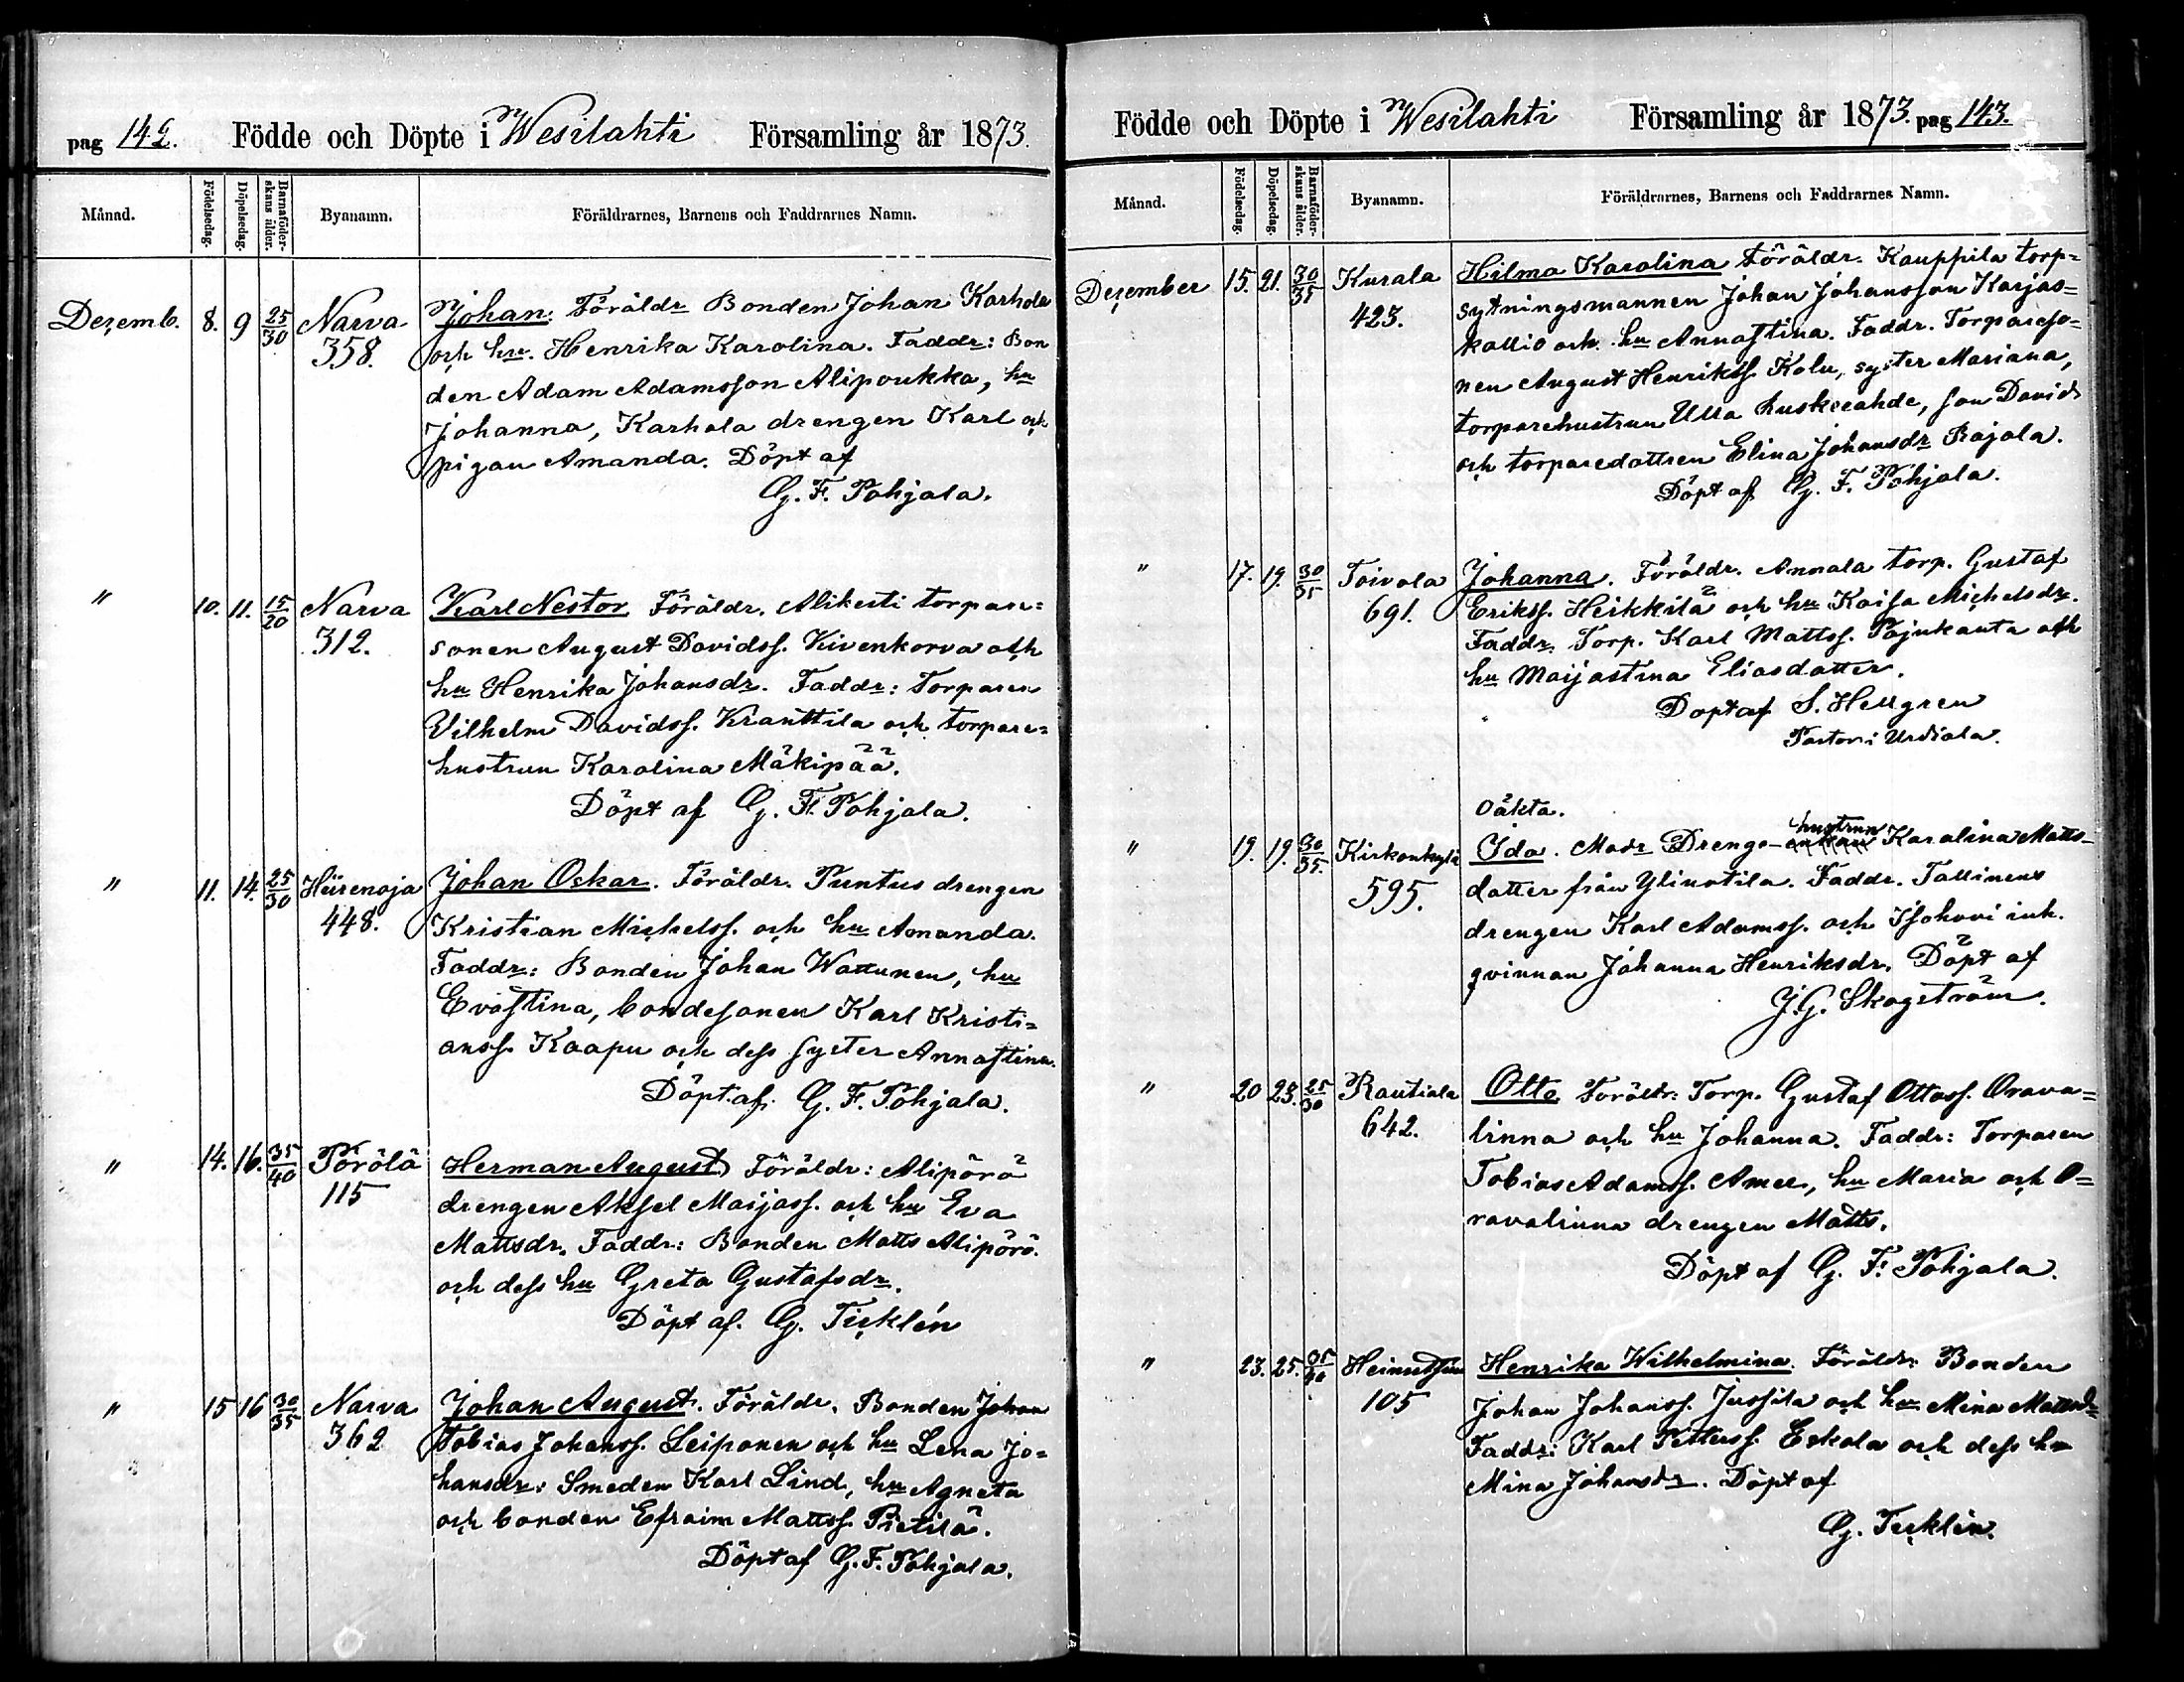 pag 142. Födde och Döpte i Wesilahti Församling år 1873.
Månad. Födelsedag. Döpelsedag. Barnaföderskans ålder. Byanamn. Föräldrarnes, Barnens och Faddrarnes Namn.
Dezemb. 8. 9 25/30 Narva 358. Johan. Föräldr Bonden Johan Karhola
och hu. Henrika Karolina. Faddr: Bon
den Adam Adamsson Alipoukka, hu
Johanna, Karhola drengen Karl och
pigan Amanda. Döpt af
G. F. Pohjala.
" 10. 11. 15/20 Narva 312. Karl Nestor Föräldr. Alikesti torpare=
sonen August Davidss. Kivenkorva och
hu Henrika Johansdr. Faddr: Torparen
Vilhelm Davidss. Kranttila och torpare=
hustrun Karolina Mäkipää.
Döpt af G. F. Pohjala.
" 11. 14. 25/30 Hiirenoja 448. Johan Oskar. Föräldr. Puntus drengen
Kristian Michelss. och hu Amanda.
Faddr: Bonden Johan Wattunen, hu
Evastina, bondesonen Karl Kristi=
anss. Kaapu och dess syster Annastina.
Döpt af G. F. Pohjala.
" 14. 16. 35/40 Pörölä 115 Herman August Föräldr: Alipörö
drengen Aksel Maijass. och hu Eva
Mattsdr. Faddr: Bonden Matts Alipörö.
och dess hu Greta Gustafsdr.
Döpt af. G. Ticklén
" 15 16 30/35 Narva 362 Johan August. Föräldr. Bonden Johan
Tobias Johanss. Leiponen och hu Lena Jo=
hansdr: Smeden Karl Lind, hu Agneta
och bonden Efraim Mattss. Pietilä.
Döpt af G. F. Pohjala.
Födde och Döpte i Wesilahti Församling år 1873. pag 143.
Månad. Födelsedag. Döpelsedag. Barnaföderskans ålder. Byanamn. Föräldrarnes, Barnens och Faddrarnes Namn.
Dezember 15. 21. 30/35 Kurala 423. Hilma Karolina Föräldr. Kauppila torp=
sytningsmannen Johan Johansson Karjas=
kallio och hu Annastina. Faddr. Torpareso=
nen August Henrikss. Kolu, syster Mariana,
torparehustrun Ulla, son David
och torparedattren Elina Johansdr Rajala.
Döpt af G. F. Pohjala.
" 17. 19. 30/35 Toivola 691. Johanna. Föräldr. Annala torp. Gustaf
Erikss. Heikkilä och hu Kaisa Michelsdr.
Faddr. Torp. Karl Mattss. Pajukanta och
hu Maijastina Eliasdatter.
Döpt af S. Hellgren
Pastor i Urdiala.
oäkta.
" 19. 19. 30/35. Kirkonkylä 595. Ida. Modr Drengs-hustrun Karolina Matts-
datter från Yliuotila. Faddr. Tallinens
drengen Karl Adamss. och Isohovi inh.
qvinnan Johanna Henriksdr. Döpt af
J. G. Skogström.
" 20 23. 25/30 Rautiala 642. Otto Föräldr: Torp. Gustaf Ottoss. Orava=
linna och hu Johanna. Faddr: Torparen
Tobias Adamss. Amee, hu Maria och O=
ravalinna drengen Matts.
Döpt af G. F. Pohjala.
" 23. 25. 35/40 105 Henrika Wilhelmina. Föräldr. Bonden
Johan Johanss. Jussila och hu Mina Mattsdr
Faddr: Karl Petterss. Eskola och dess hu
Mina Johansdr. Döpt af
G. Ticklén.